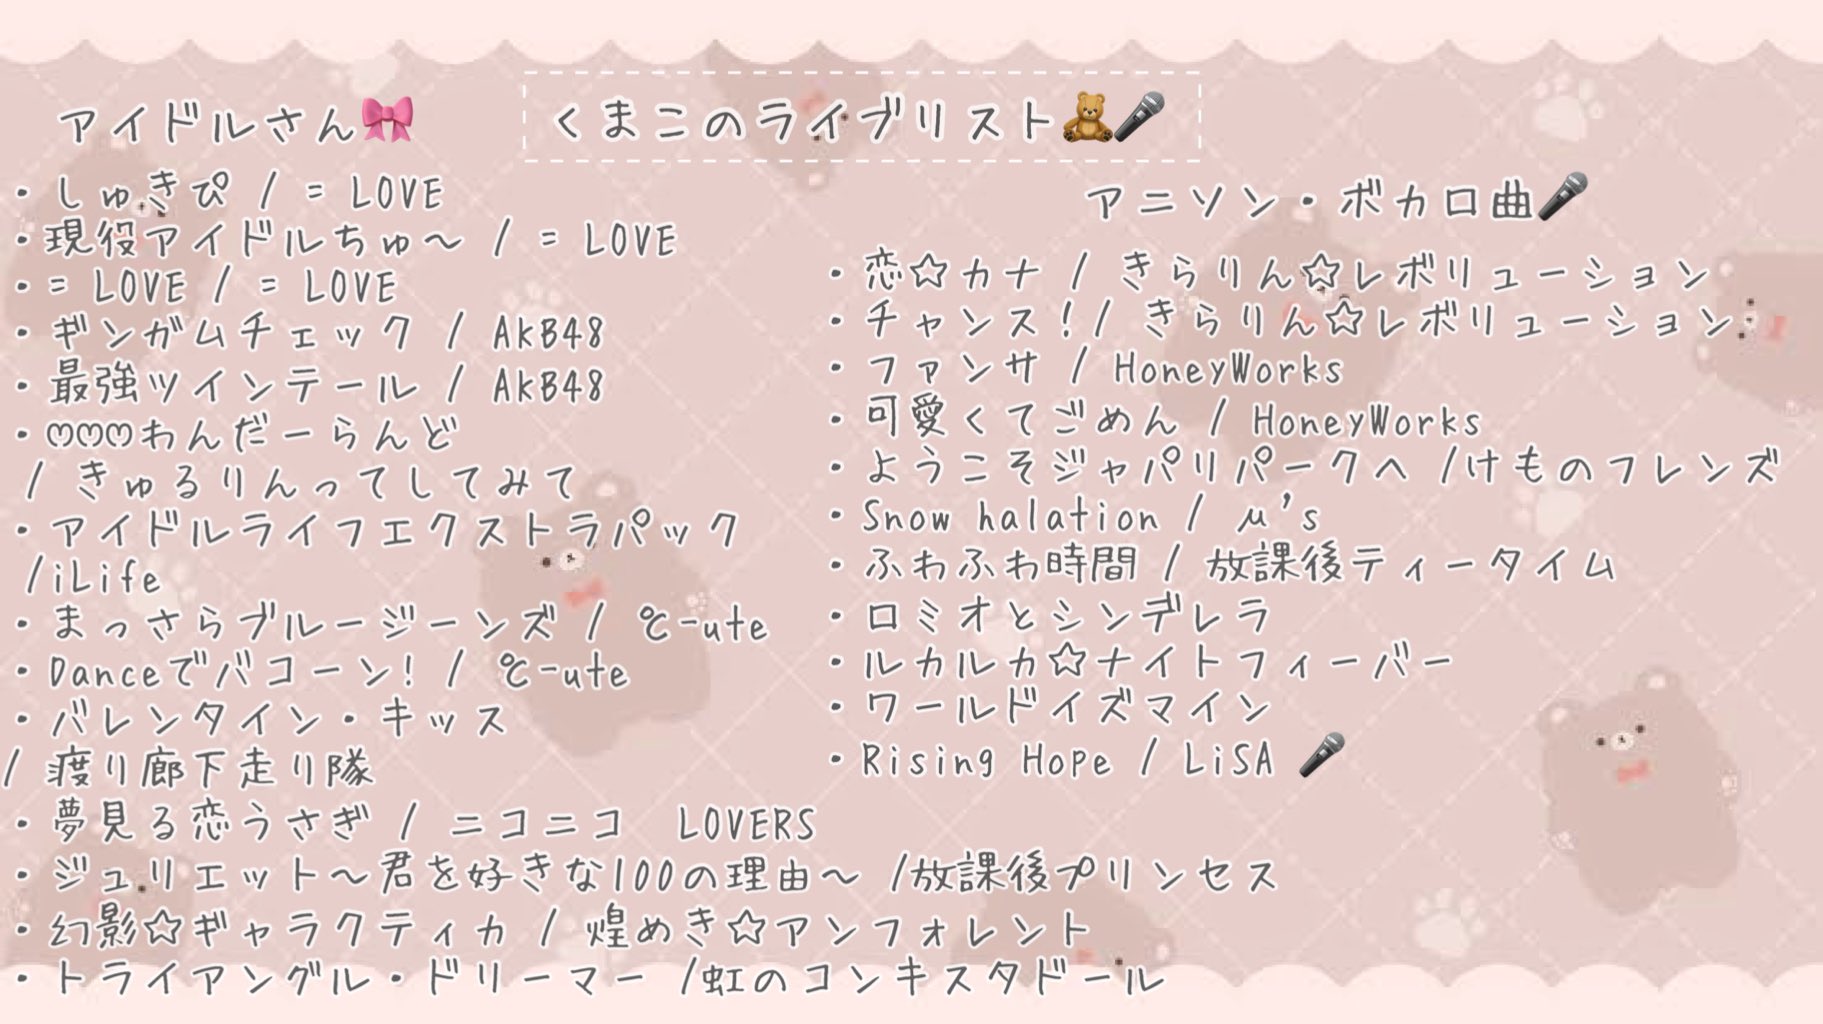 くまこのライブリスト🧸🎤
アイドルさん🎀
・しゅきぴ / = LOVE
・現役アイドルちゅ〜 / = LOVE
・= LOVE / = LOVE
・ギンガムチェック / AKB48
・最強ツインテール / AKB48
・ෆෆෆわんだーらんど
/ きゅるりんってしてみて
・アイドルライフエクストラパック
/iLife
・まっさらブルージーンズ / ℃-ute
・Danceでバコーン! / ℃-ute
・バレンタイン・キッス
/ 渡り廊下走り隊
・夢見る恋うさぎ / ニコニコ　LOVERS
・ジュリエット〜君を好きな100の理由〜 /放課後プリンセス
・幻影☆ギャラクティカ / 煌めき☆アンフォレント
・トライアングル・ドリーマー /虹のコンキスタドール
アニソン・ボカロ曲🎤
・恋☆カナ / きらりん☆レボリューション
・チャンス!/ きらりん☆レボリューション
・ファンサ / HoneyWorks
・可愛くてごめん / HoneyWorks
・ようこそジャパリパークへ /けものフレンズ
・Snow halation / μ's
・ふわふわ時間 / 放課後ティータイム
・ロミオとシンデレラ
・ルカルカ☆ナイトフィーバー
・ワールドイズマイン
・Rising Hope / LiSA 🎤